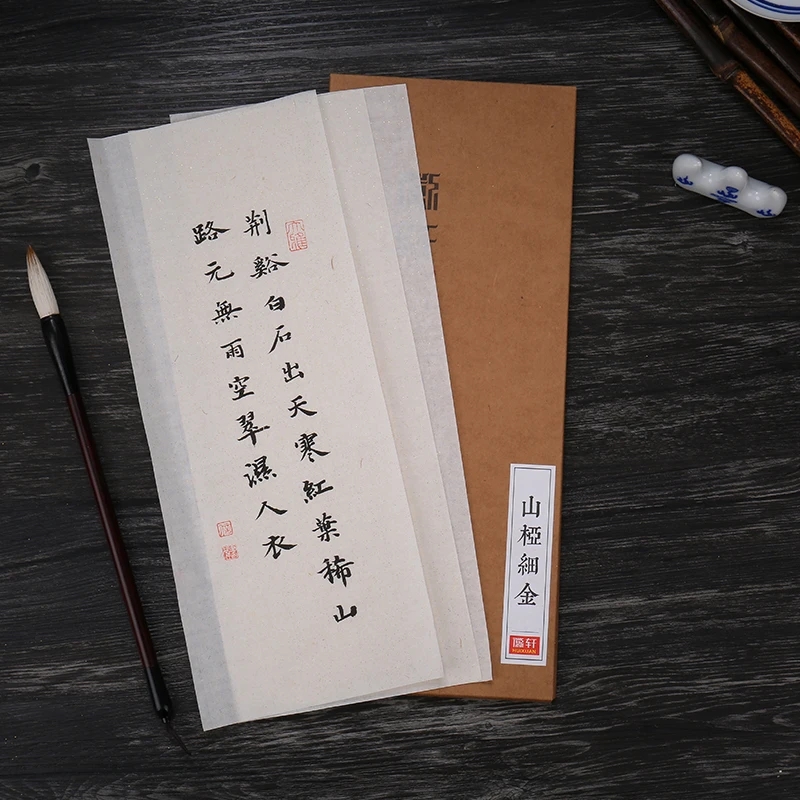 荆谿白石出天寒紅葉稀山
路元無雨空翠濕人衣
山椏細金
轩
HUIXUAN